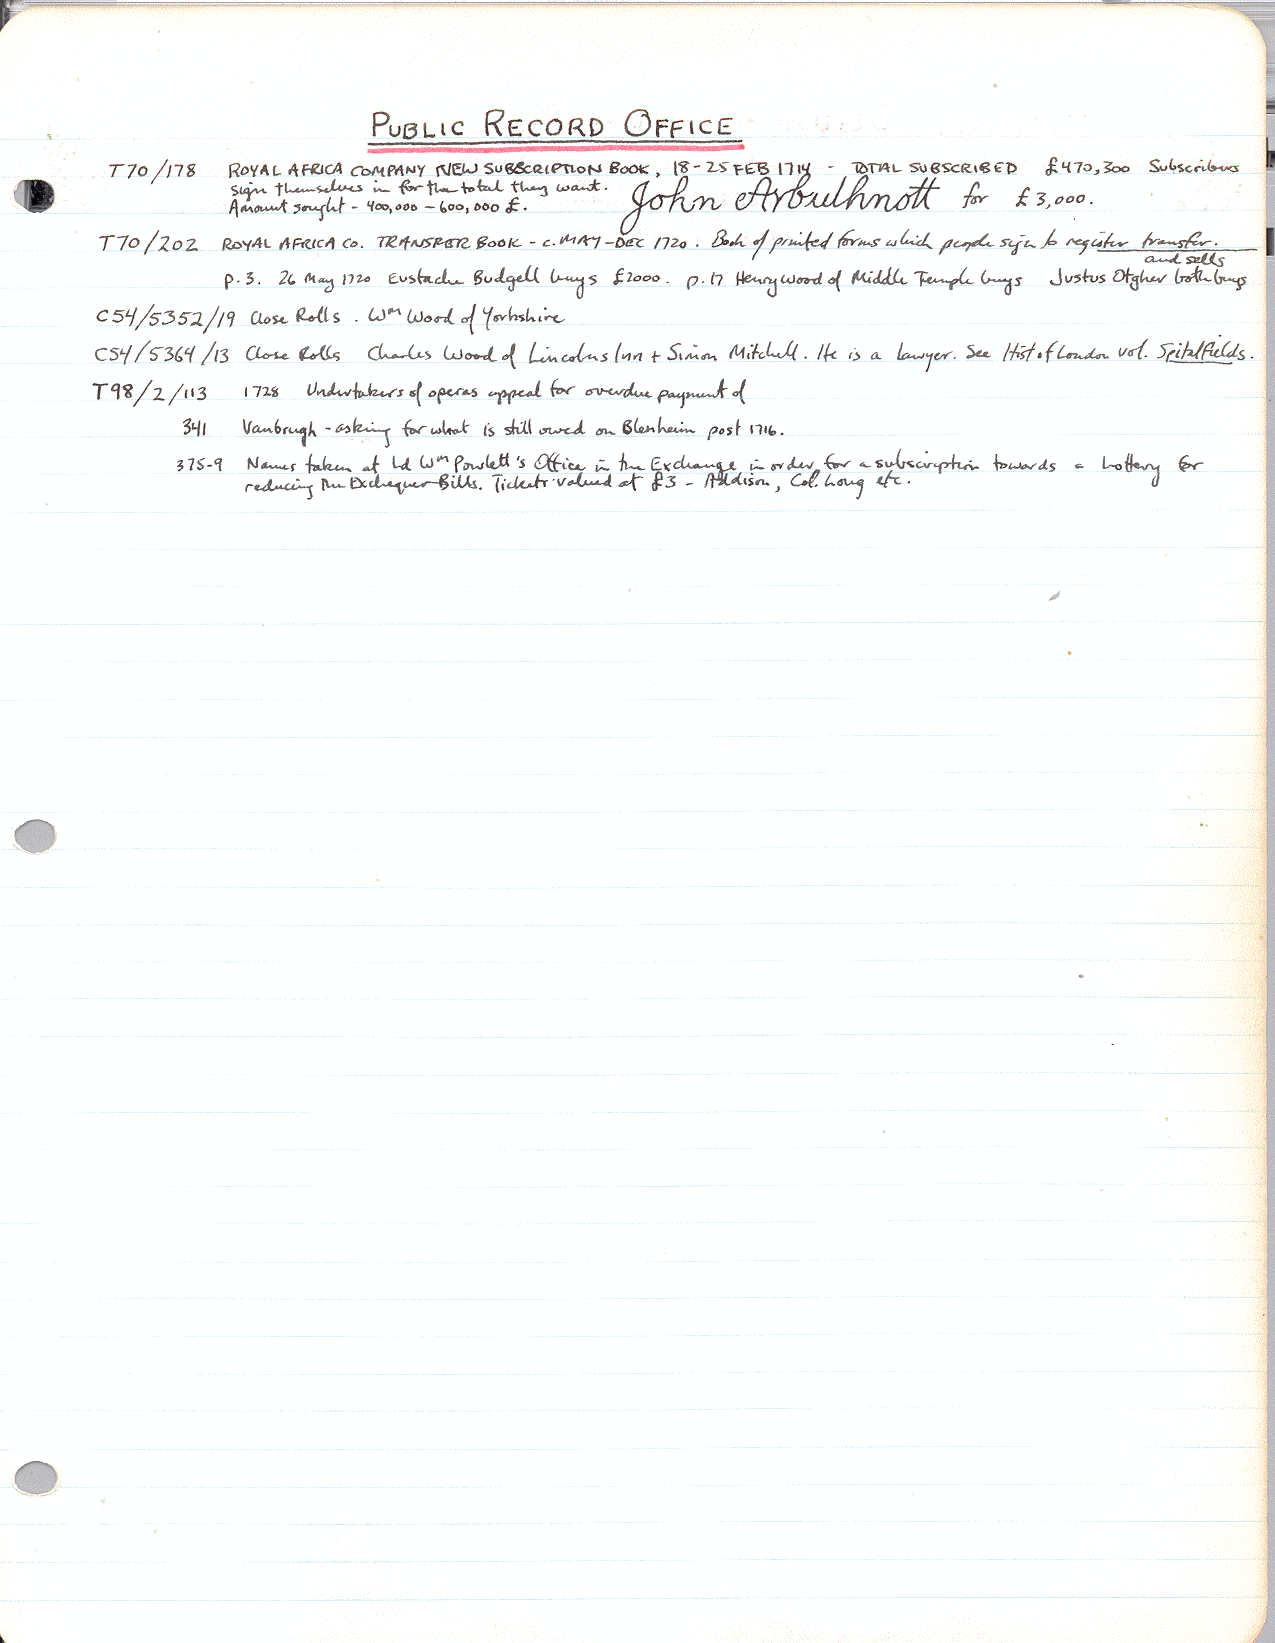 PUBLIC RECORD OFFICE
T70/178 ROYAL AFRICA COMPANY NEW SUBSCRIPTION BOOK, 18-25 FEB 1714 - TOTAL SUBSCRIBED £470,300 Subscribers
sign themselves in for the total they want.
Amount sought - 400,000 - 600,000 £. John Arbuthnott for £3,000.
T70/202 ROYAL AFRICA CO. TRANSFER BOOK - c. MAY-DEC 1720. Book of printed forms which people sign to register transfer.
and sells
p.3. 26 May 1720 Eustache Budgell buys £2000. p.17 Henry Wood of Middle Temple buys Justus Otgher both buys
C54/5352/19 Close Rolls. Wm Wood of Yorkshire
C54/5364/13 Close Rolls Charles Wood of Lincolns Inn + Simon Mitchell. He is a lawyer. See Hist of London vol. Spitalfields.
T98/2/113 1728 Undertakers of operas appeal for overdue payment of
341 Vanbrugh - asking for what is still owed on Blenheim post 1716.
375-9 Names taken at Ld Wm Powlett's Office in the Exchange in order for a subscription towards a Lottery for
reducing the Exchequer Bills. Tickets valued at £3 - Addison, Col. Long etc.